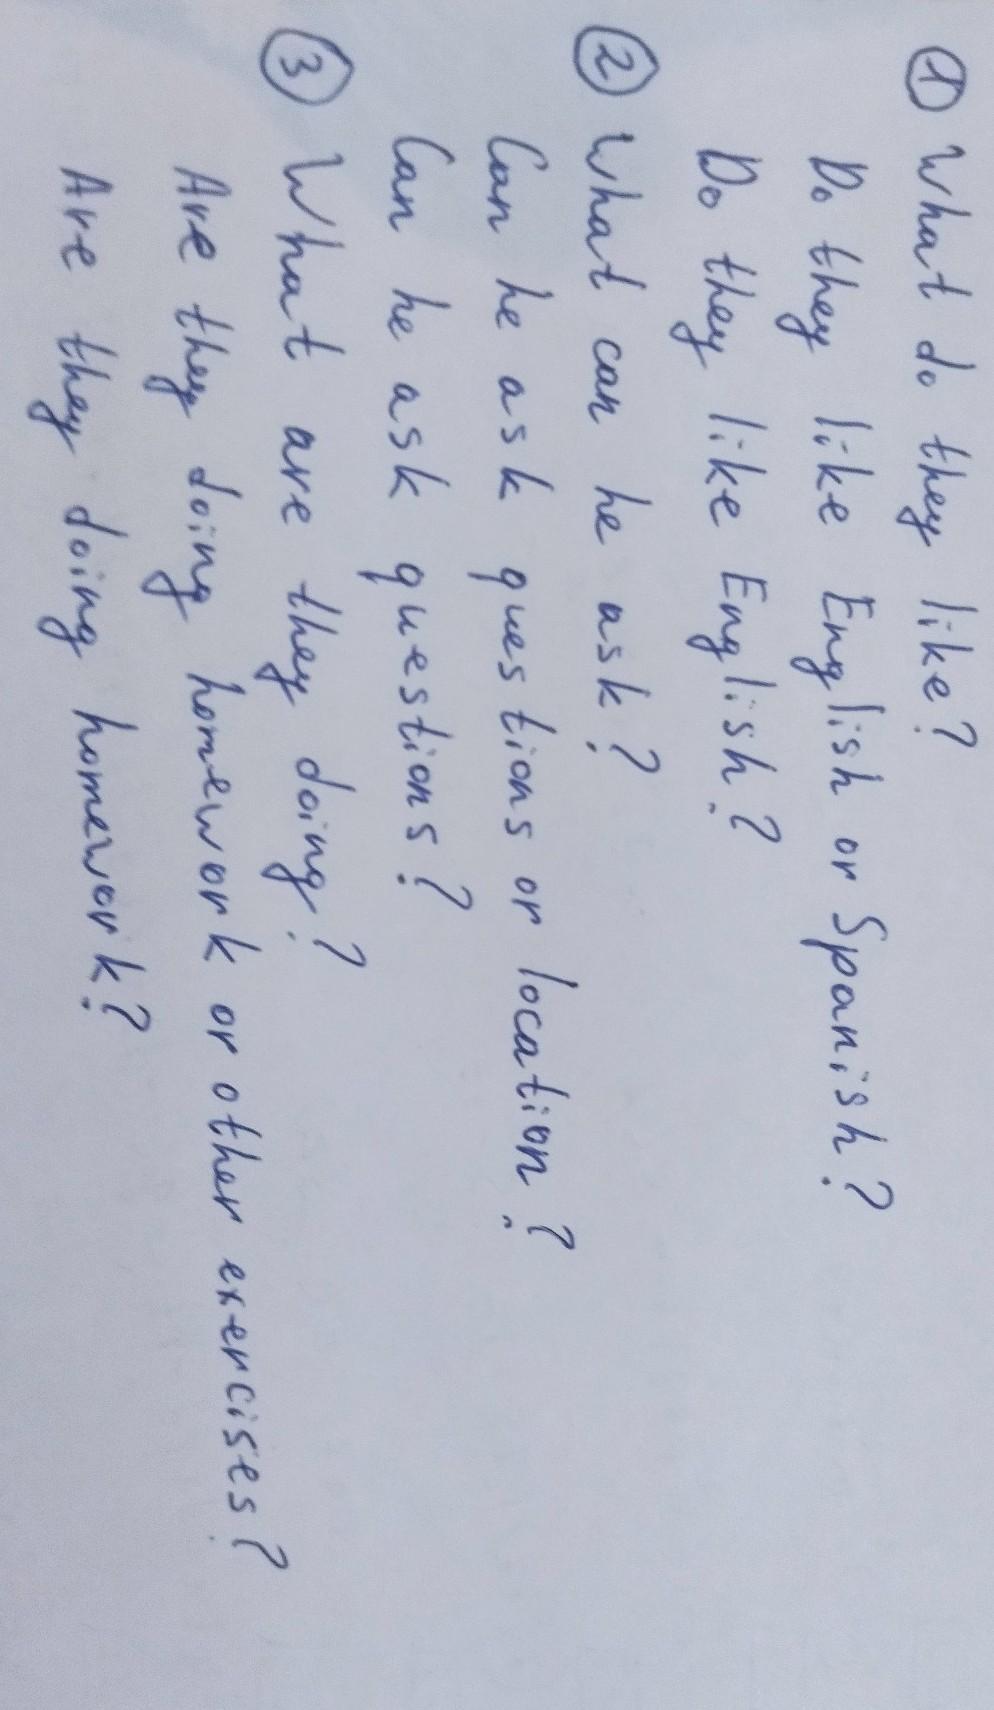 ① What do they like?
Do they like English or Spanish?
Do they like English?
② What can he ask?
Can he ask questions or location?
Can he ask questions?
③ What are they doing?
Are they doing homework or other exercises?
Are they doing homework?